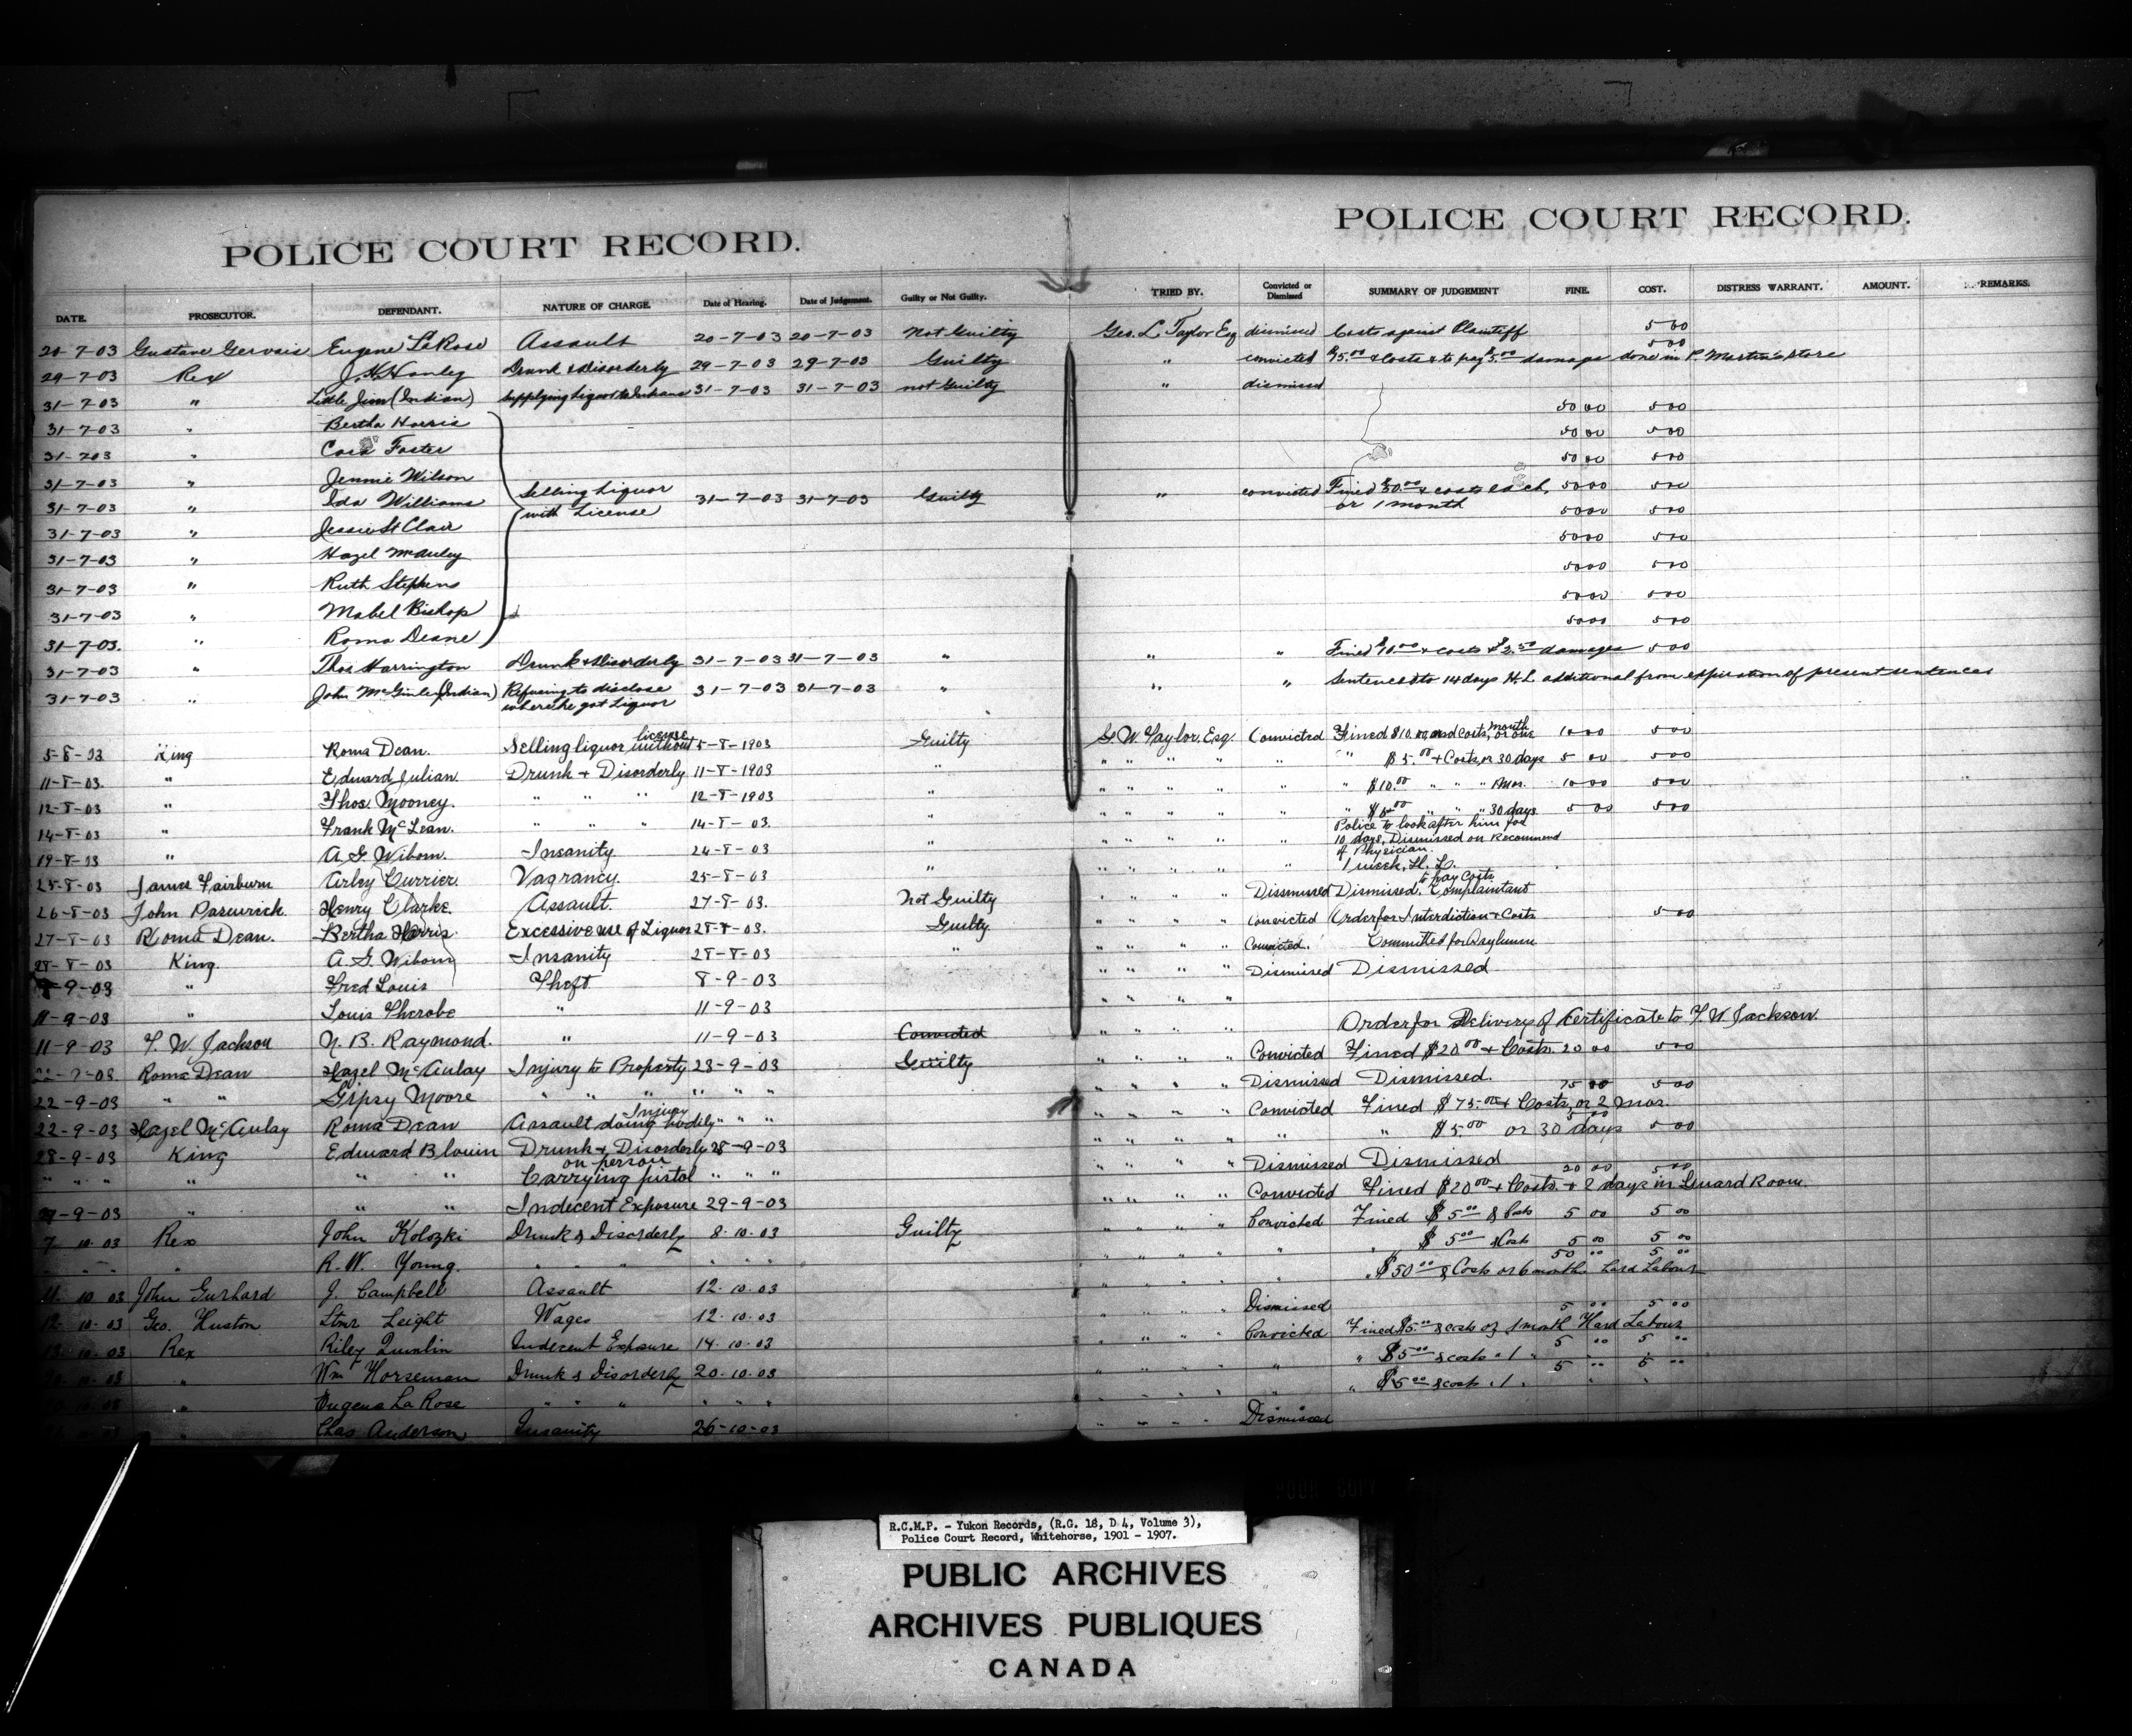 POLICE COURT RECORD. POLICE COURT RECORD.
DATE. PROSECUTOR. DEFENDANT. NATURE OF CHARGE. Date of Hearing. Date of Judgement. Guilty or Not Guilty. TRIED BY. Convicted or Dismissed SUMMARY OF JUDGEMENT FINE. COST. DISTRESS WARRANT. AMOUNT. REMARKS.
20-7-03 Gustave Gervais Eugene LaRose Assault 20-7-03 20-7-03 Not Guilty Geo. L. Taylor Esq dismissed Costs against Plaintiff 5 00
29-7-03 Rex J. H. Hanley Drunk & Disorderly 29-7-03 29-7-03 Guilty " convicted $5.00 & Costs & to pay $5.00 damage done in P. Martin's store 5 00
31-7-03 " Little Jim (Indian) Supplying liquor to Indians 31-7-03 31-7-03 not Guilty " dismissed
31-7-03 " Bertha Harris 50 00 5 00
31-7-03 " Cora Foster 50 00 5 00
31-7-03 " Jennie Wilson 50 00 5 00
31-7-03 " Ida Williams Selling Liquor with License 31-7-03 31-7-03 Guilty " convicted Fined $50.00 & costs each, or 1 month 50 00 5 00
31-7-03 " Jessie St Clair 50 00 5 00
31-7-03 " Hazel McAuley 50 00 5 00
31-7-03 " Ruth Stephens 50 00 5 00
31-7-03 " Mabel Bishop 50 00 5 00
31-7-03. " Roma Deane 50 00 5 00
31-7-03 " Thos Harrington Drunk & Disorderly 31-7-03 31-7-03 " " " Fined $10.00 & costs & $2.50 damages 5 00
31-7-03 " John McGinley (Indian) Refusing to disclose where he got Liquor 31-7-03 31-7-03 " " " Sentenced to 14 days H.L. additional from expiration of present sentences
5-8-03 King Roma Dean. Selling liquor without license 5-8-1903 Guilty G. W. Taylor, Esq. Convicted Fined $10.00 and Costs, or one month 10 00 5 00
11-8-03. " Edward Julian. Drunk + Disorderly 11-8-1903 " " " " " " " $5.00 + Costs or 30 days 5 00 5 00
12-8-03 " Thos. Mooney. " " " 12-8-1903 " " " " " " " $10.00 " " " 1 Mon. 10 00 5 00
14-8-03 " Frank McLean. " " " 14-8-03. " " " " " " " $5.00 " " " 30 days 5 00 5 00
19-8-03 " A. G. Wibom. Insanity. 24-8-03 " " " " " " Police to look after him for 10 days, Dismissed on Recommend of Physician.
25-8-03 James Fairburn Arley Currier. Vagrancy. 25-8-03 " " " " " " 1 week, H. L.
26-8-03 John Henry Clarke. Assault. 27-8-03. Not Guilty " " " " Dissmissed Dismissed, Complaintant to pay Costs
27-8-03 Roma Dean. Bertha Harris. Excessive use of Liquor 28-8-03. Guilty " " " " Convicted Order for Interdiction + Costs 5 00
28-8-03 King. A. G. Wibom Insanity 28-8-03 " " " " " Convicted. Committed for Asylumn
-9-03 " Fred Louis Theft 8-9-03 " " " " Dismissed Dismissed
11-9-03 " Louis Therobe " 11-9-03 " " " "
11-9-03 F. W. Jackson N. B. Raymond. " 11-9-03 Convicted " " " " Order for Delivery of Certificate to F. W. Jackson.
22-9-03 Roma Dean Hazel McAulay Injury to Property 23-9-03 Guilty " " " " Convicted Fined $20.00 + Costs. 20 00 5 00
22-9-03 " " Gipsy Moore " " " " " " " " " " Dismissed Dismissed.
22-9-03 Hazel McAulay Roma Dean Assault doing bodily Injury " " " " " " " Convicted Fined $75.00 + Costs, or 2 mos. 75 00 5 00
28-9-03 King Edward Blouin Drunk + Disorderly 28-9-03 " " " " " " $5.00 or 30 days 5 00 5 00
" " " " " " Carrying pistol on person " " " " " " " Dismissed Dismissed
29-9-03 " " " Indecent Exposure 29-9-03 " " " " Convicted Fined $20.00 + Costs. + 2 days in Guard Room. 20 00 5 00
7 10 03 Rex John Kolozki Drunk & Disorderly 8.10.03 Guilty " " " " Convicted Fined $5.00 & Costs 5 00 5 00
" " " " R. W. Young. " " " " " " " " " " " " $5.00 & Costs 5 00 5 00
11 10 03 John Gurhard J. Campbell Assault 12.10.03 " " " " " " $50.00 & Costs or 6 months hard Labour 50 00 5 00
12 10 03 Geo. Huston Stmr Leight Wages 12.10.03 " " " " Dismissed
13 10 03 Rex Riley Quinlin Indecent Exposure 14.10.03 " " " " Convicted Fined $5.00 & costs or 1 month Hard Labour 5 00 5 00
20 10 03 " Wm Horseman Drunk & Disorderly 20.10.03 " " " " " " $5.00 & costs " 1 " 5 00 5 00
" Eugene La Rose " " " " " " " " " " " $5.00 & costs " 1 " 5 00 5 00
" Chas Anderson Insanity 26-10-03 " " " " Dismissed
R.C.M.P. - Yukon Records, (R.G. 18, D 4, Volume 3),
Police Court Record, Whitehorse, 1901 - 1907.
PUBLIC ARCHIVES
ARCHIVES PUBLIQUES
CANADA